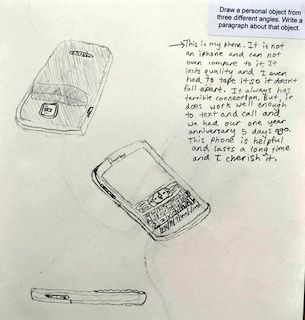 Draw a personal object from
three different angles. Write a
paragraph about that object.
→This is my phone. It is not
an iphone and can not
even compare to it. It
lacks quality and I even
had to tape it so it doesn't
fall apart. It always has
terrible connection. But, it
does work well enough
to text and call and
we had our one year
anniversary 5 days ago.
This phone is helpful
and lasts a long time
and I cherish it.